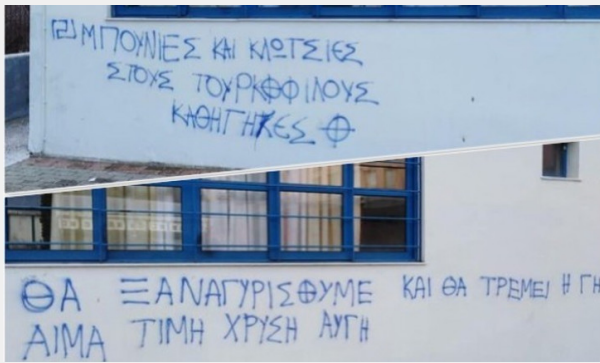 ΜΠΟΥΝΙΕΣ ΚΑΙ ΚΛΩΤΣΙΕΣ
ΣΤΟΥΣ ΤΟΥΡΚΟΦΙΛΟΥΣ
ΚΑΘΗΓΗΤΕΣ
ΘΑ ΞΑΝΑΓΥΡΙΣΟΥΜΕ ΚΑΙ ΘΑ ΤΡΕΜΕΙ Η ΓΗ
ΑΙΜΑ ΤΙΜΗ ΧΡΥΣΗ ΑΥΓΗ